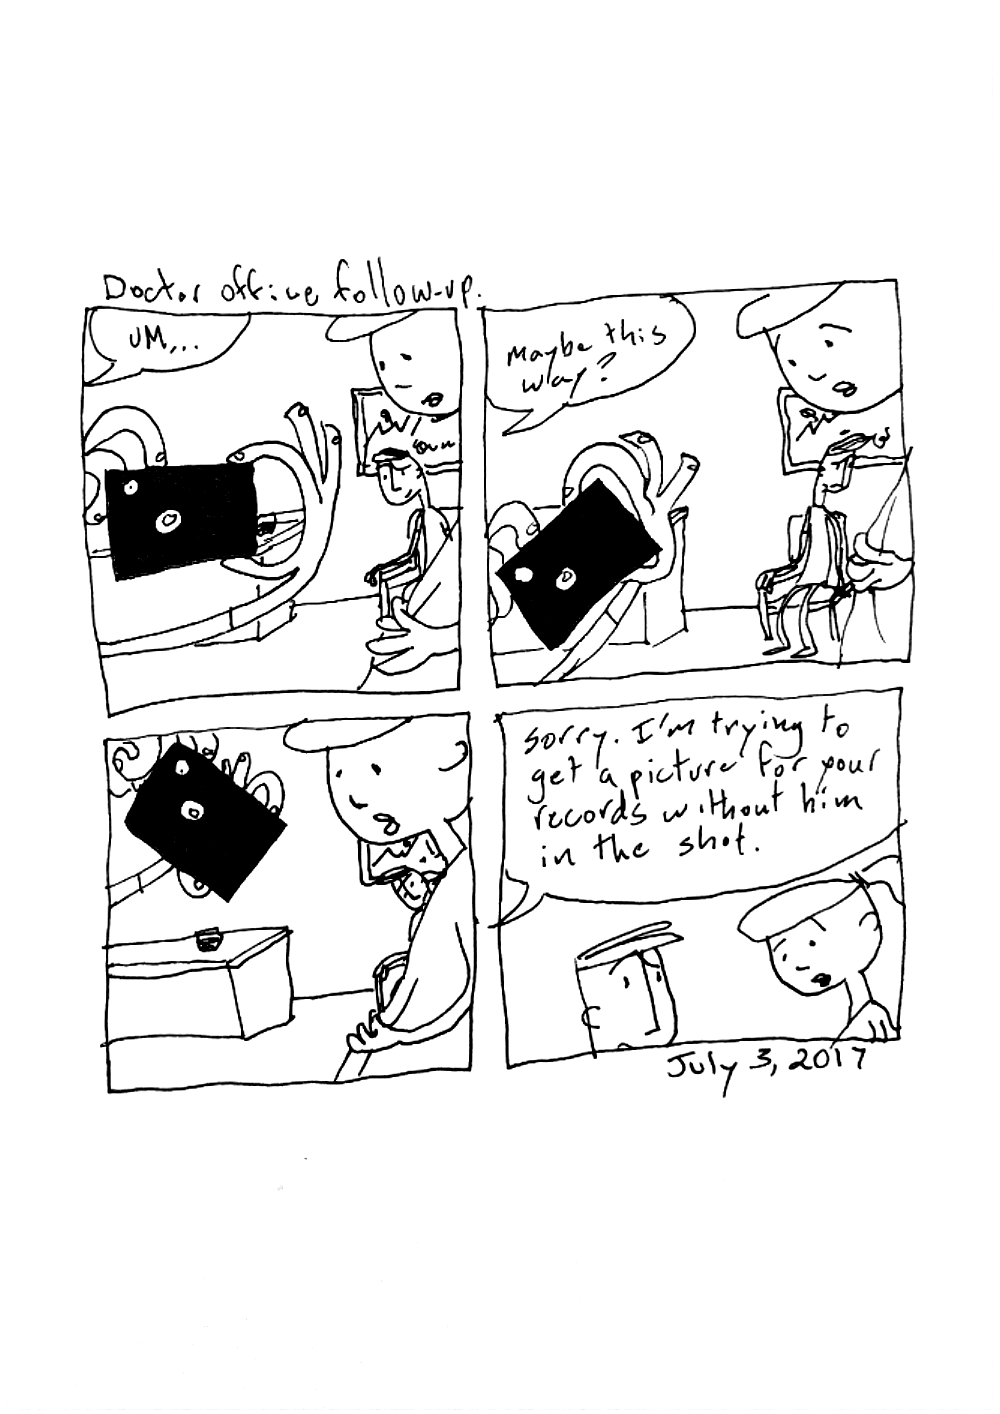 Doctor office follow-up.
UM,..
Maybe this
way?
Sorry. I'm trying to
get a picture for your
records without him
in the shot.
July 3, 2017